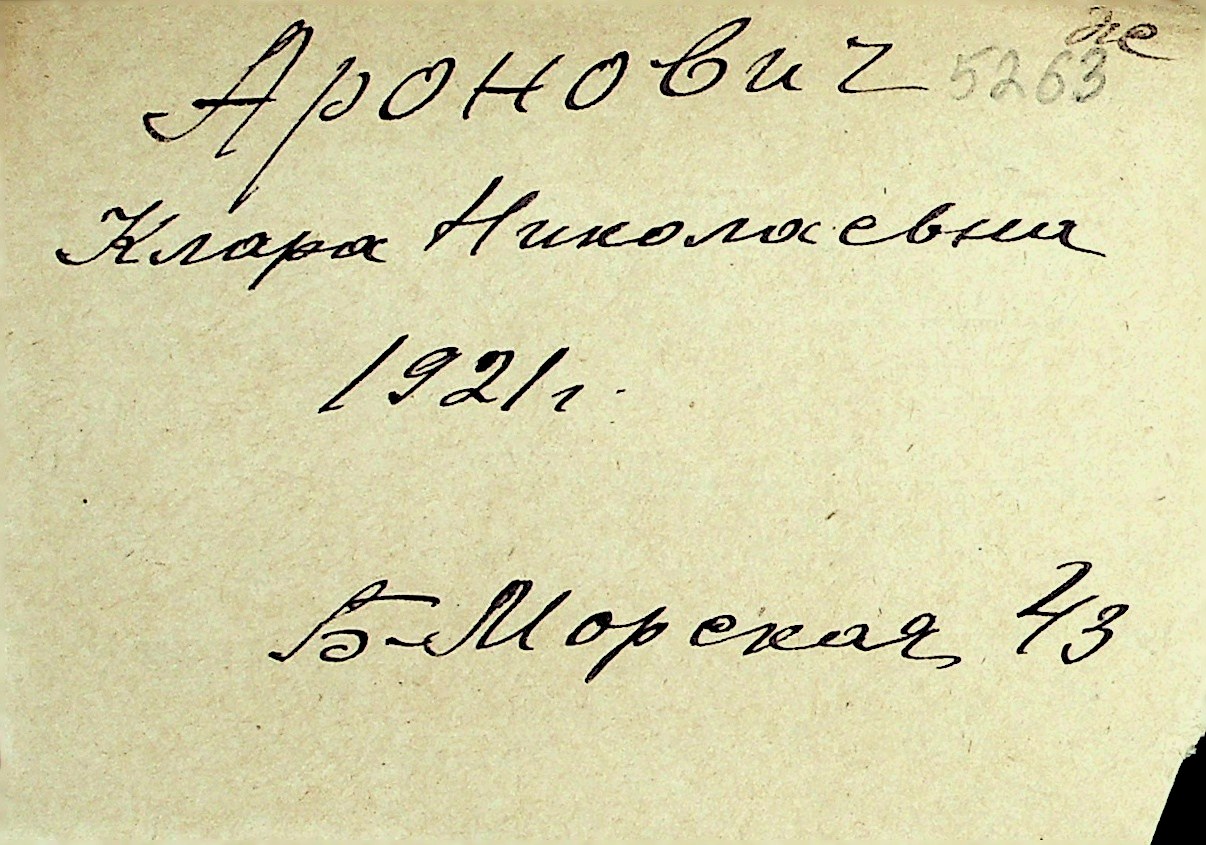 Аронович 5263
Клара Николаевна
1921г.
Б-Морская 43